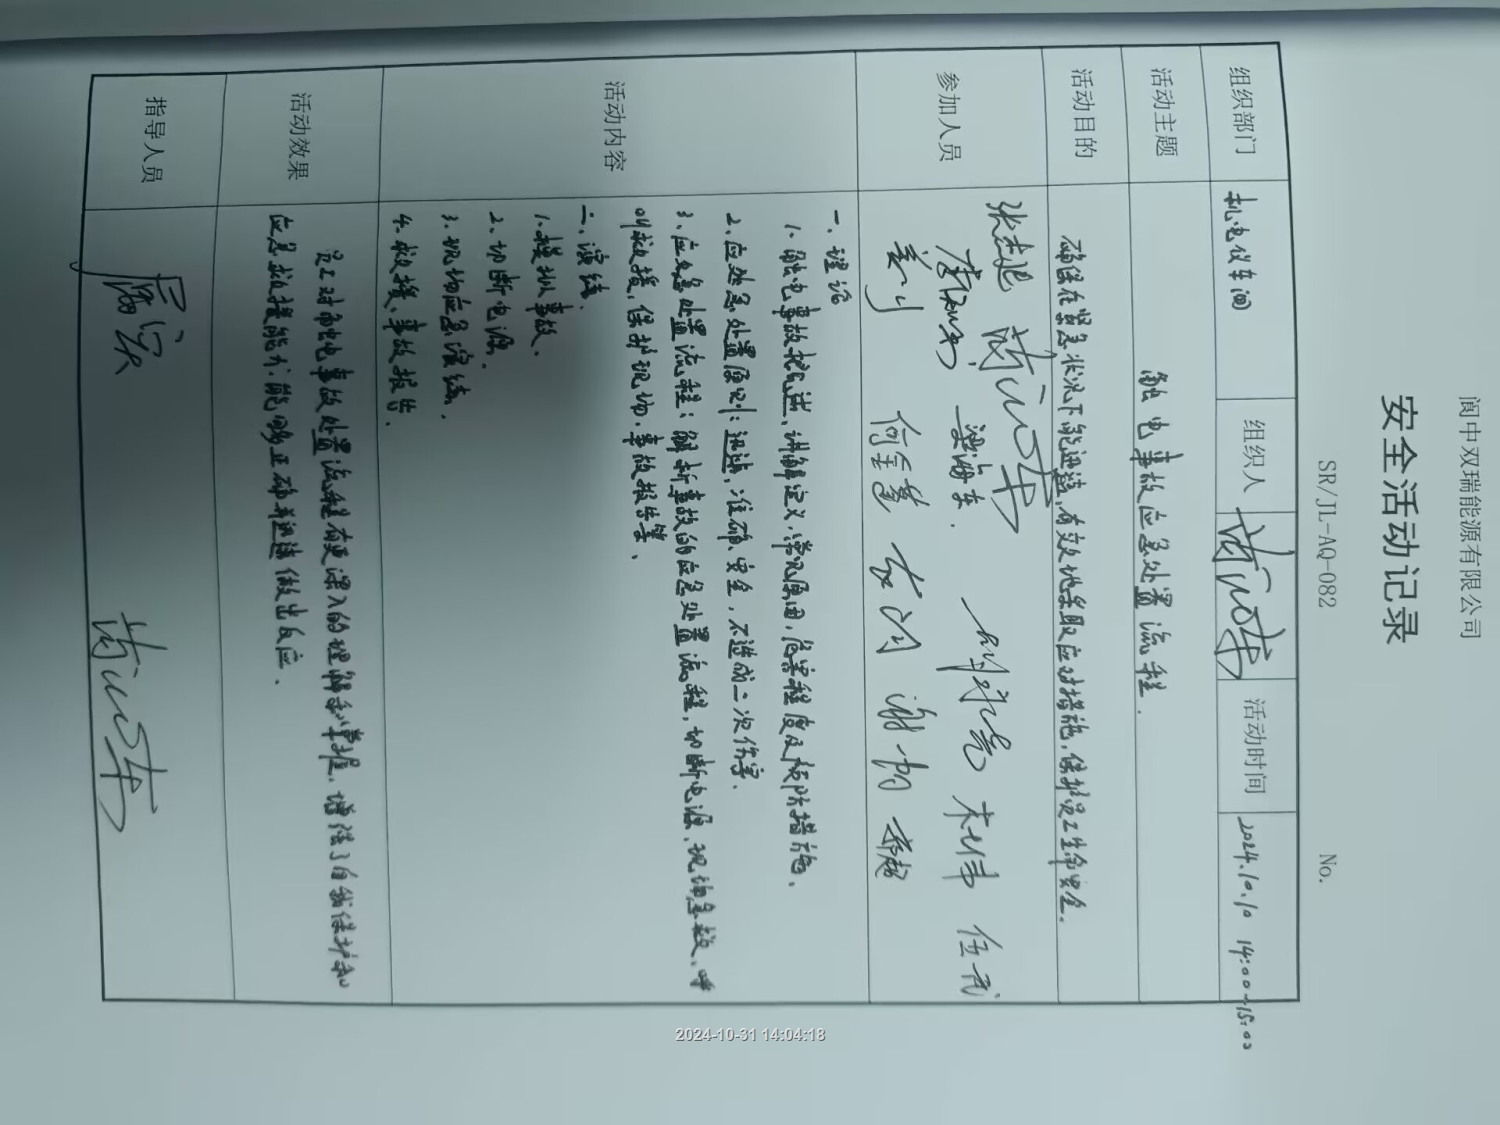 阆中双瑞能源有限公司
安全活动记录
SR/JL-AQ-082 No.
组织部门 机电仪车间 组织人 活动时间 2024.10.10 14:00-15:00
活动主题 触电事故应急处置流程.
活动目的 确保在紧急状况下能迅速,有效地采取应对措施,保护员工生命安全.
参加人员
梁海东.
姜川 何全慧 谢
活动内容
一、理论
1、触电事故概述,讲解定义,常见原因,危害程度及预防措施.
2、应处急处置原则:迅速,准确、安全,不造成二次伤害.
3、应处急处置流程:解析事故的应急处置流程,切断电源,现场急救、呼
叫救援,保护现场.事故报告等、
二、演练.
1.模拟事故、
2、切断电源.
3.现场应急演练.
4.救援、事故报告.
活动效果
员工对触电事故处置流程有更深入的理解和掌握,增强了自我保护和
应急救援能力.能够正确并迅速做出反应.
指导人员
2024-10-31 14:04:18